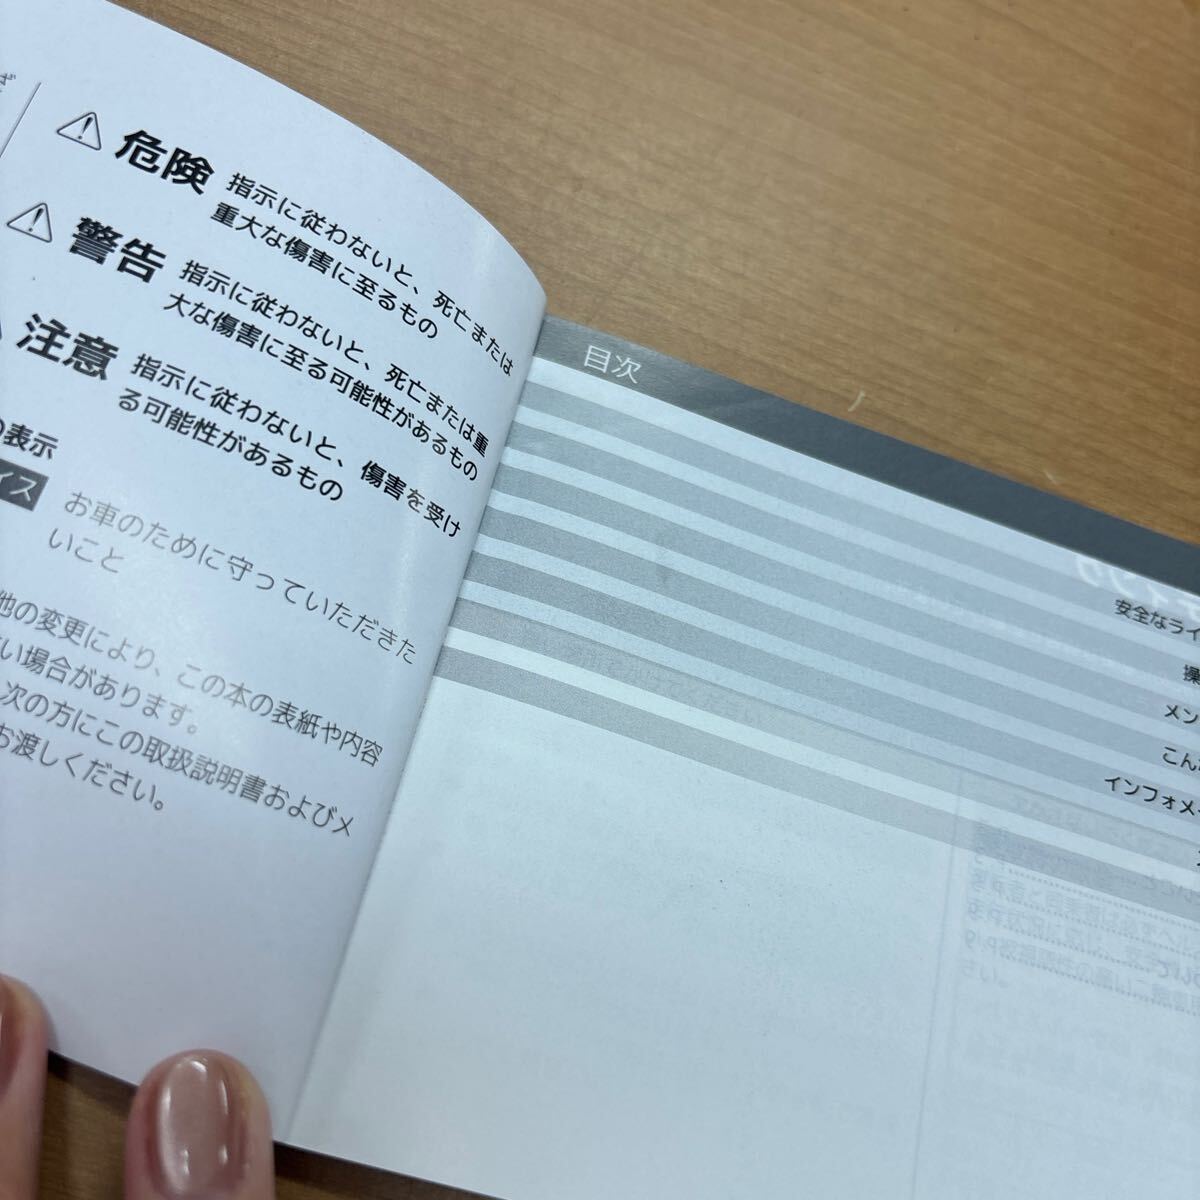 危険
指示に従わないと、死亡または
重大な傷害に至るもの
警告
指示に従わないと、死亡または重
大な傷害に至る可能性があるもの
注意
指示に従わないと、傷害を受け
る可能性があるもの
の表示
イス
お車のために守っていただきた
いこと
他の変更により、この本の表紙や内容
い場合があります。
次の方にこの取扱説明書およびメ
お渡しください。
目次
安全なライ
操
メン
こん
インフォメ